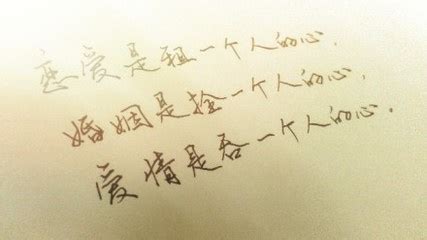 恋爱是租一个人的心，
婚姻是拴一个人的心，
爱情是吞一个人的心。